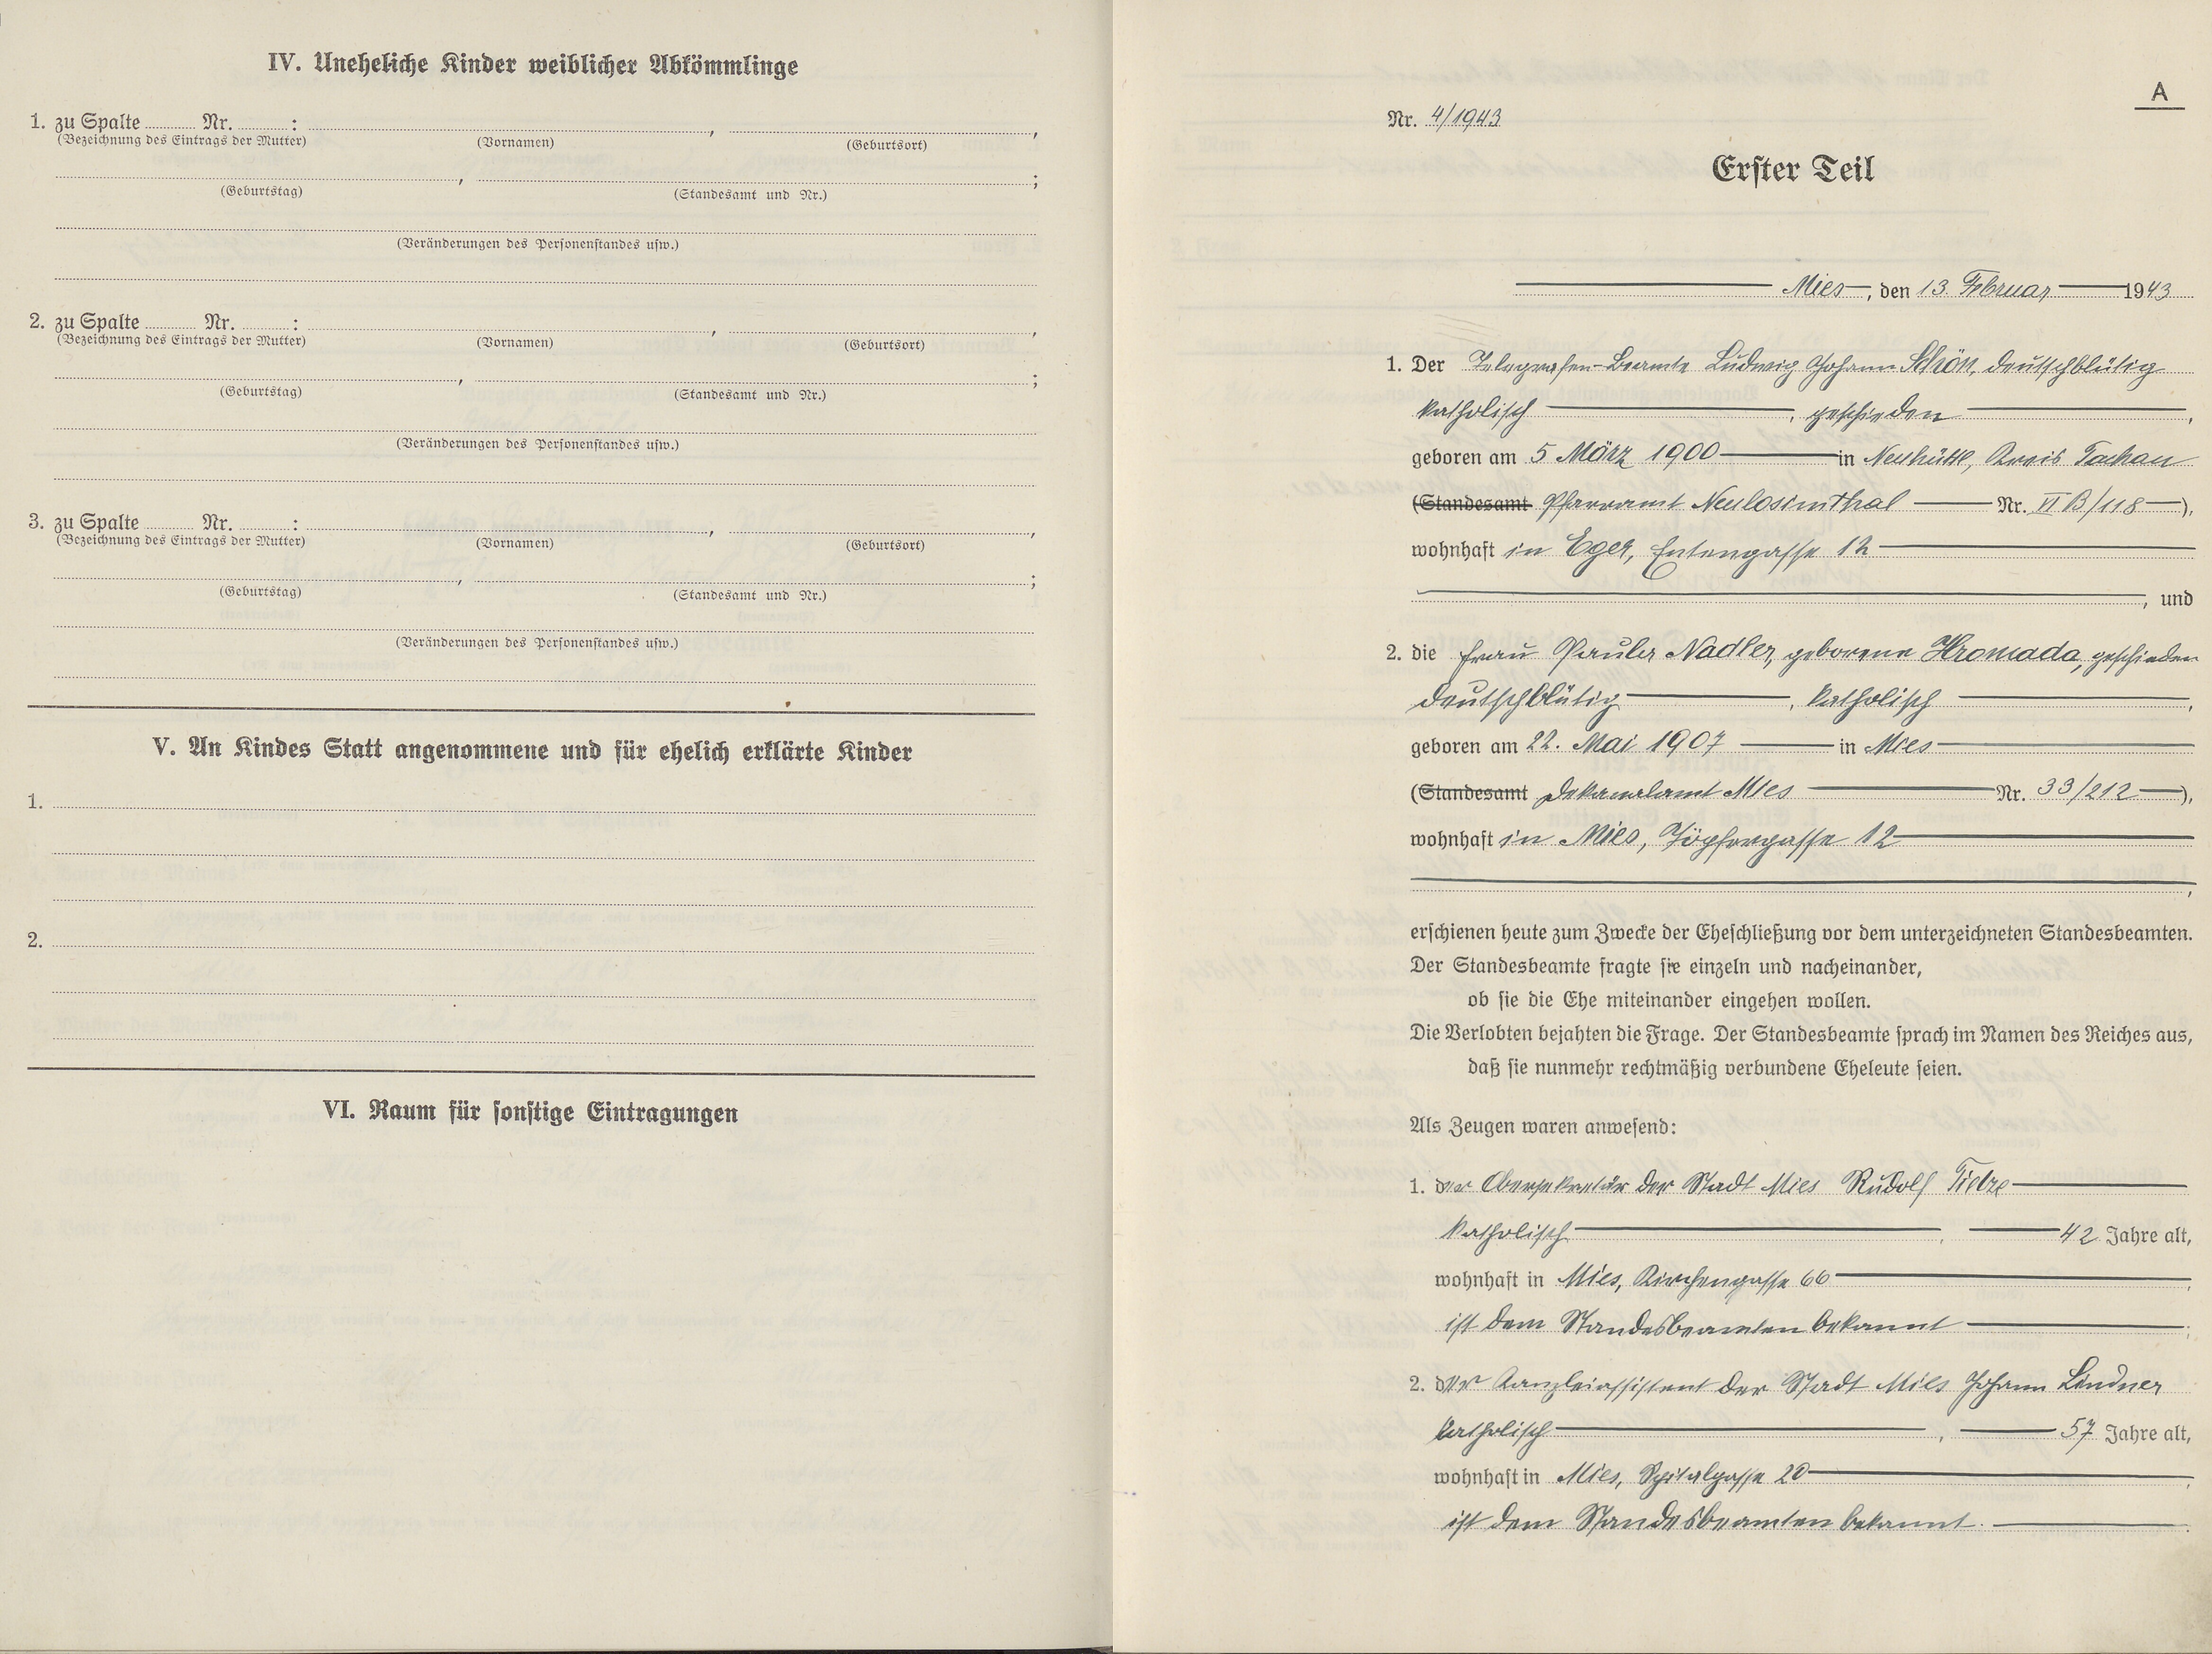 IV. Uneheliche Kinder weiblicher Abkömmlinge
1. zu Spalte Nr. : , ,
(Bezeichnung des Eintrags der Mutter) (Vornamen) (Geburtsort)
, ;
(Geburtstag) (Standesamt und Nr.)
(Veränderungen des Personenstandes usw.)
2. zu Spalte Nr. : , ,
(Bezeichnung des Eintrags der Mutter) (Vornamen) (Geburtsort)
, ;
(Geburtstag) (Standesamt und Nr.)
(Veränderungen des Personenstandes usw.)
3. zu Spalte Nr. : , ,
(Bezeichnung des Eintrags der Mutter) (Vornamen) (Geburtsort)
, ;
(Geburtstag) (Standesamt und Nr.)
(Veränderungen des Personenstandes usw.)
V. An Kindes Statt angenommene und für ehelich erklärte Kinder
1.
2.
VI. Raum für sonstige Eintragungen
A
Nr. 4/1943
Erster Teil
Mies, den 13. Februar 1943
1. Der Telegrafen-Beamte Ludwig Johann Schön, deutschblütig
katholisch, geschieden,
geboren am 5 März 1900 in Neuhütte, Kreis Tachau
(Standesamt Pfarramt Neulosimthal Nr. VI B/118),
wohnhaft in Eger, Entengasse 12
, und
2. die Frau Paula Nadler, geborene Hromada, geschieden
deutschblütig, katholisch,
geboren am 22. Mai 1907 in Mies
(Standesamt Dekanalamt Mies Nr. 33/212),
wohnhaft in Mies, Töpfergasse 12
,
erschienen heute zum Zwecke der Eheschließung vor dem unterzeichneten Standesbeamten.
Der Standesbeamte fragte sie einzeln und nacheinander,
ob sie die Ehe miteinander eingehen wollen.
Die Verlobten bejahten die Frage. Der Standesbeamte sprach im Namen des Reiches aus,
daß sie nunmehr rechtmäßig verbundene Eheleute seien.
Als Zeugen waren anwesend:
1. der Obersekretär der Stadt Mies Rudolf Tietze
katholisch, 42 Jahre alt,
wohnhaft in Mies, Kirchengasse 66,
ist dem Standesbeamten bekannt;
2. der Kanzleiassistent der Stadt Mies Johann Lindner
katholisch, 57 Jahre alt,
wohnhaft in Mies, Spitalgasse 20,
ist dem Standesbeamten bekannt.